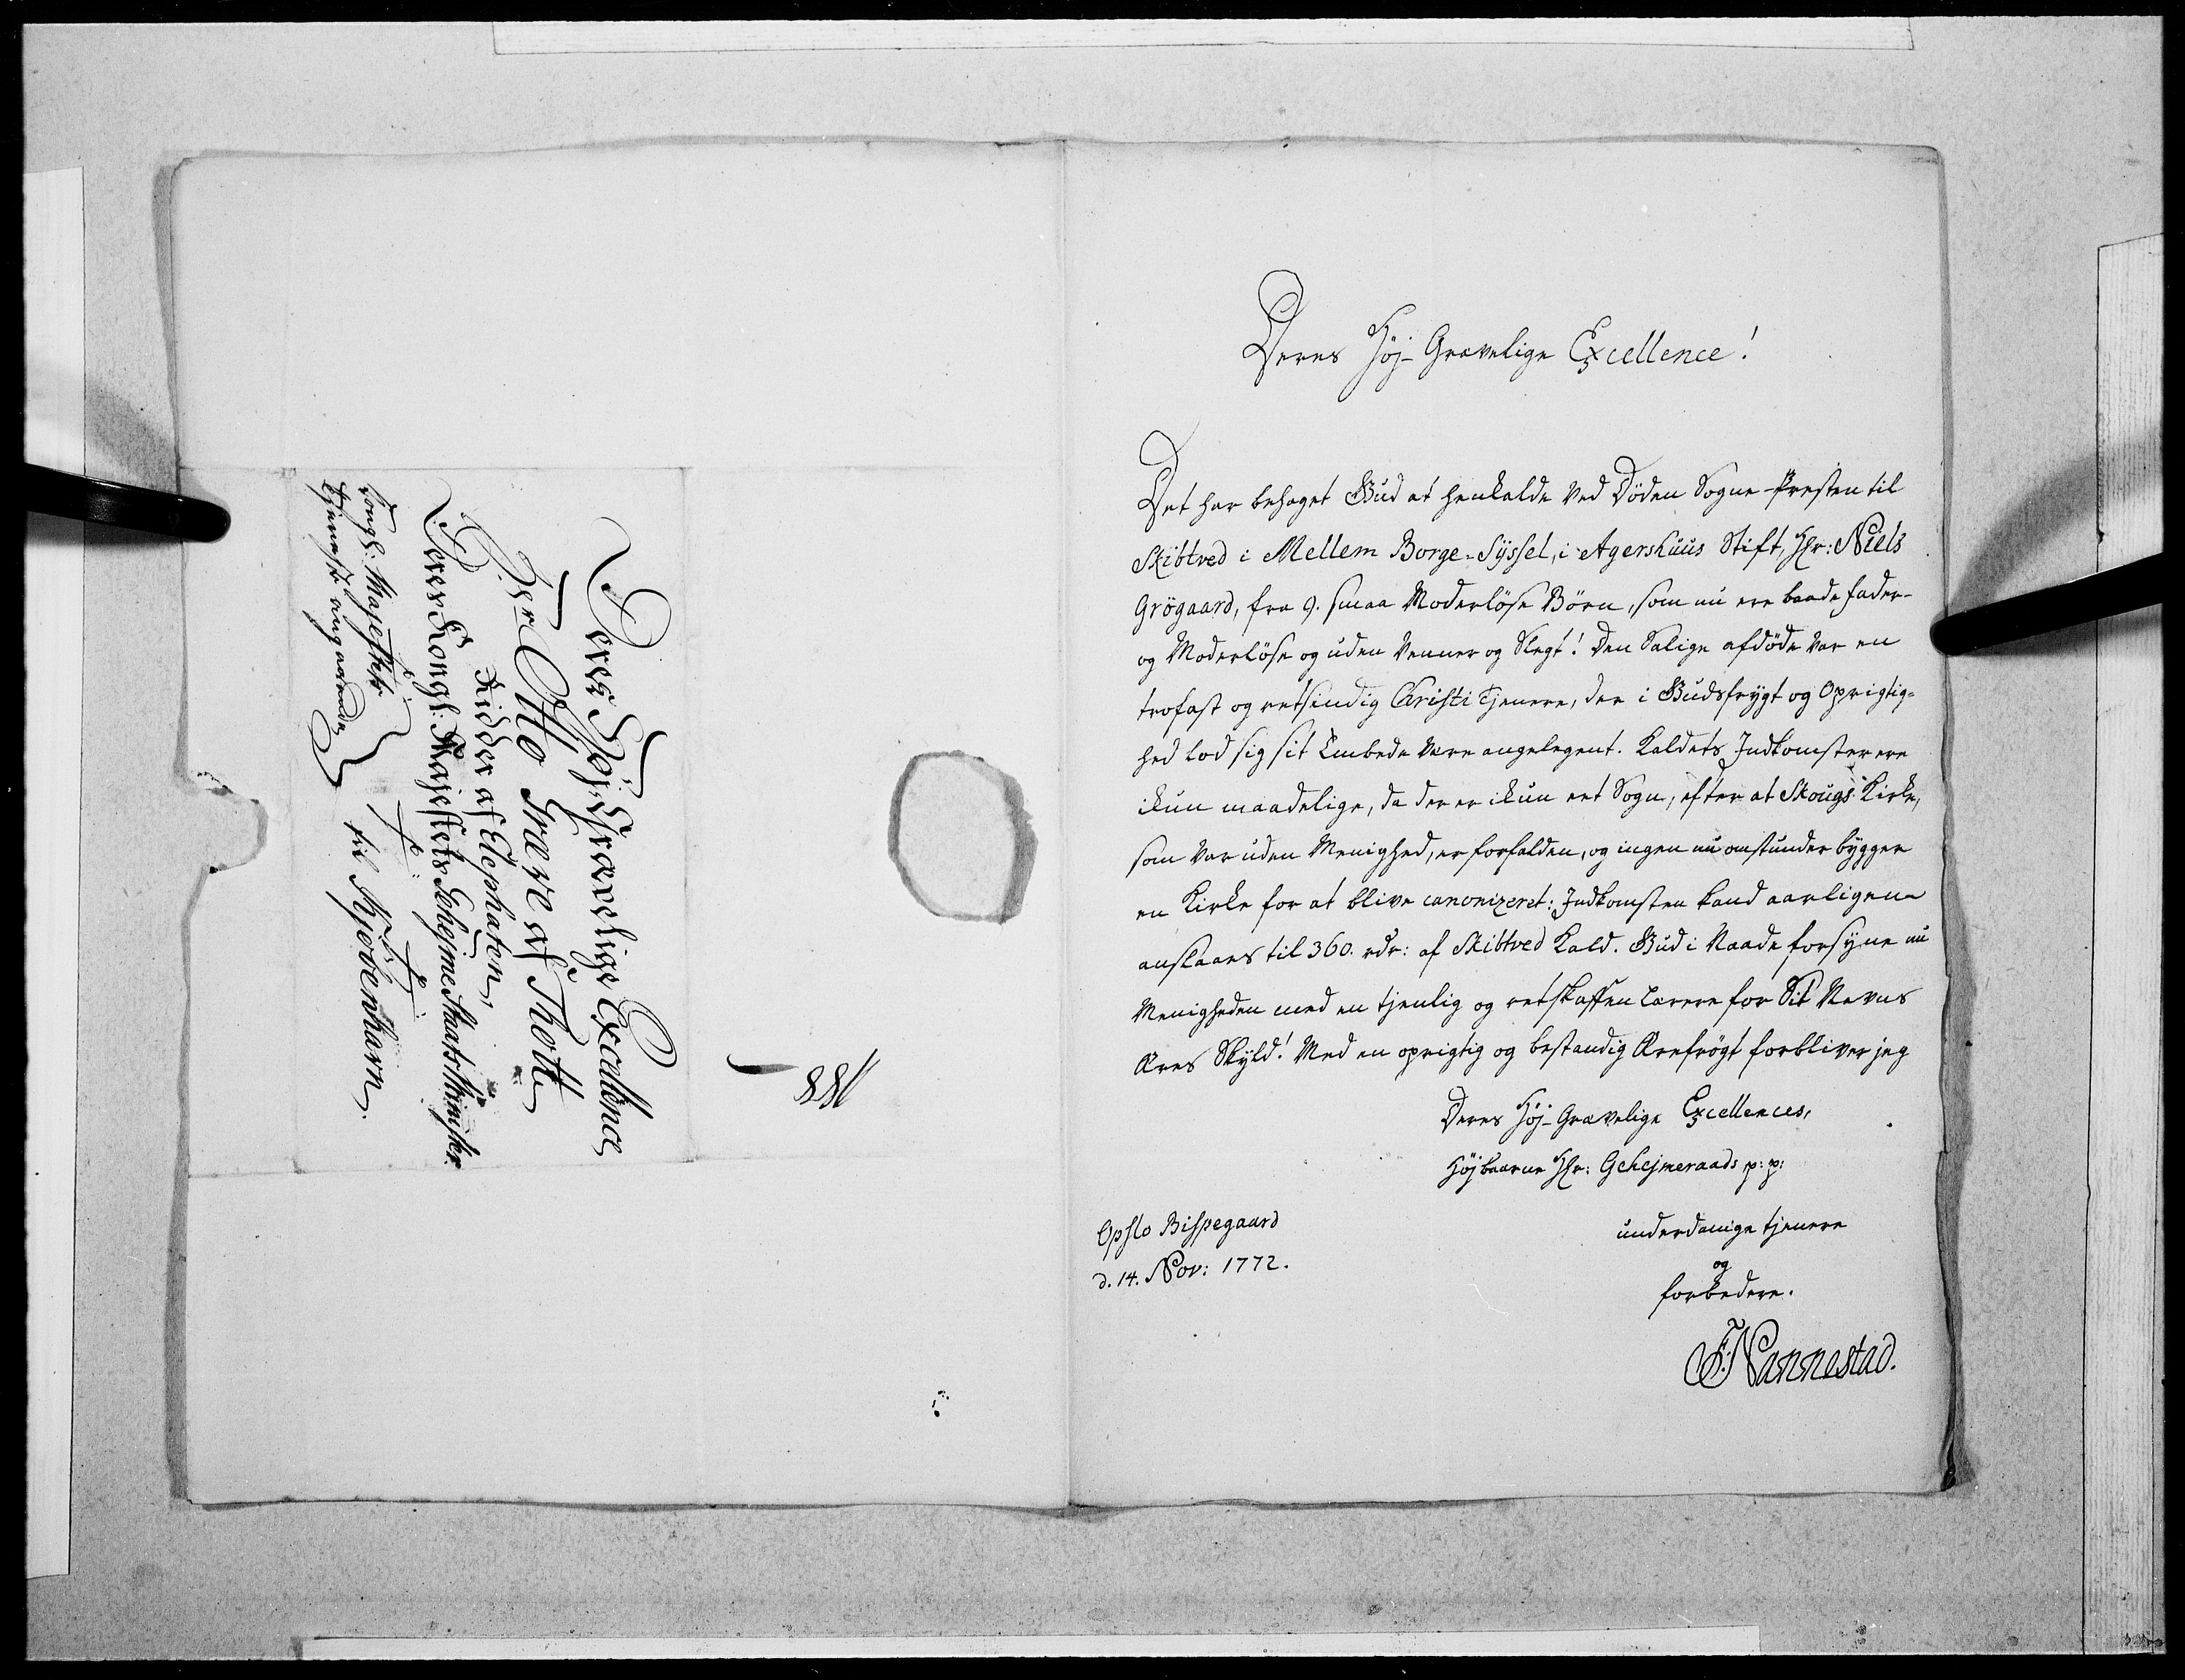 Deres Höj-Grævelige Excellence
Herr Otto Græve af Thott
Ridder af Elephaten,
Deres Kongl: Majestets Gehejme Staats Minister
til Kjöbenhavn.
Kongl: Majestets
Tjeneste angaaende
Deres Höj-Grævelige Excellence!
Det har behaget Gud at henkalde ved Döden Sogne-Præsten til
Skibtved i Mellem Borge-Sÿssel, i Agershuus Stift, Hr: Niels
Grögaard, fra 9. smaa Moderlöse Börn, som nu ere baade fader-
og Moderlöse og uden Venner og Slegt! Den Salige afdöde var en
trofast og retsindig Christi Tjenere, der i Gudsfrygt og Oprigtig-
hed lod sig sit Embede være angelegent. Kaldets Indkomster ere
ikun maadelige, da der er ikun eet Sogn, efter at Skougs Kirke,
som var uden Menighed, er forfalden, og ingen nu omstunder bygger
en Kirke for at blive canonizeret: Indkomsten kand aarligen
anslaaes til 360. rdr: af Skibtved Kald. Gud i Naade forsyne nu
Menigheden med en tjenlig og retskaffen Lærere for Sit Navns
Æres Skyld! Med en oprigtig og bestandig Ærefrögt forbliver jeg
Deres Höj-Grævelige Excellences,
Höjbaarne Hr: Gehejmeraads p: p:
underdanige tjenere
og
forbedere.
Opslo Bispegaard
d. 14. Nov: 1772.
F: Nannestad.